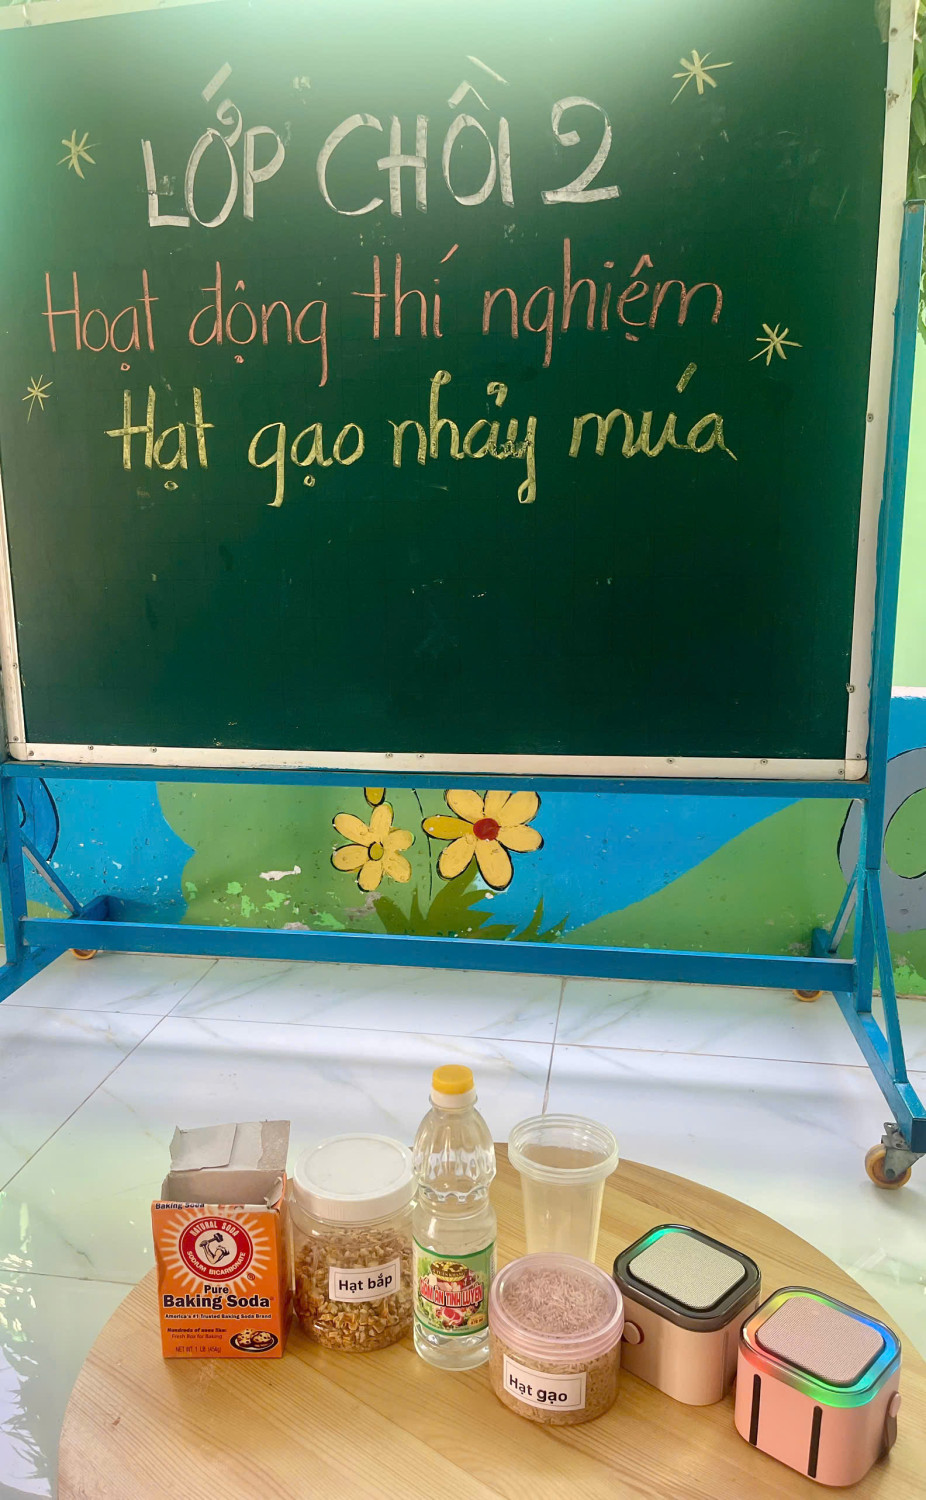 LỚP CHỒI 2
Hoạt động thí nghiệm
Hạt gạo nhảy múa
Baking Soda
NATURAL SODA
SODIUM BICARBONATE
Pure
Baking Soda
America's #1 Trusted Baking Soda Brand
Fresh Box for Baking
NET WT 1 LB (454g)
Hạt bắp
GIẤM ĂN TINH LUYỆN
Hạt gạo